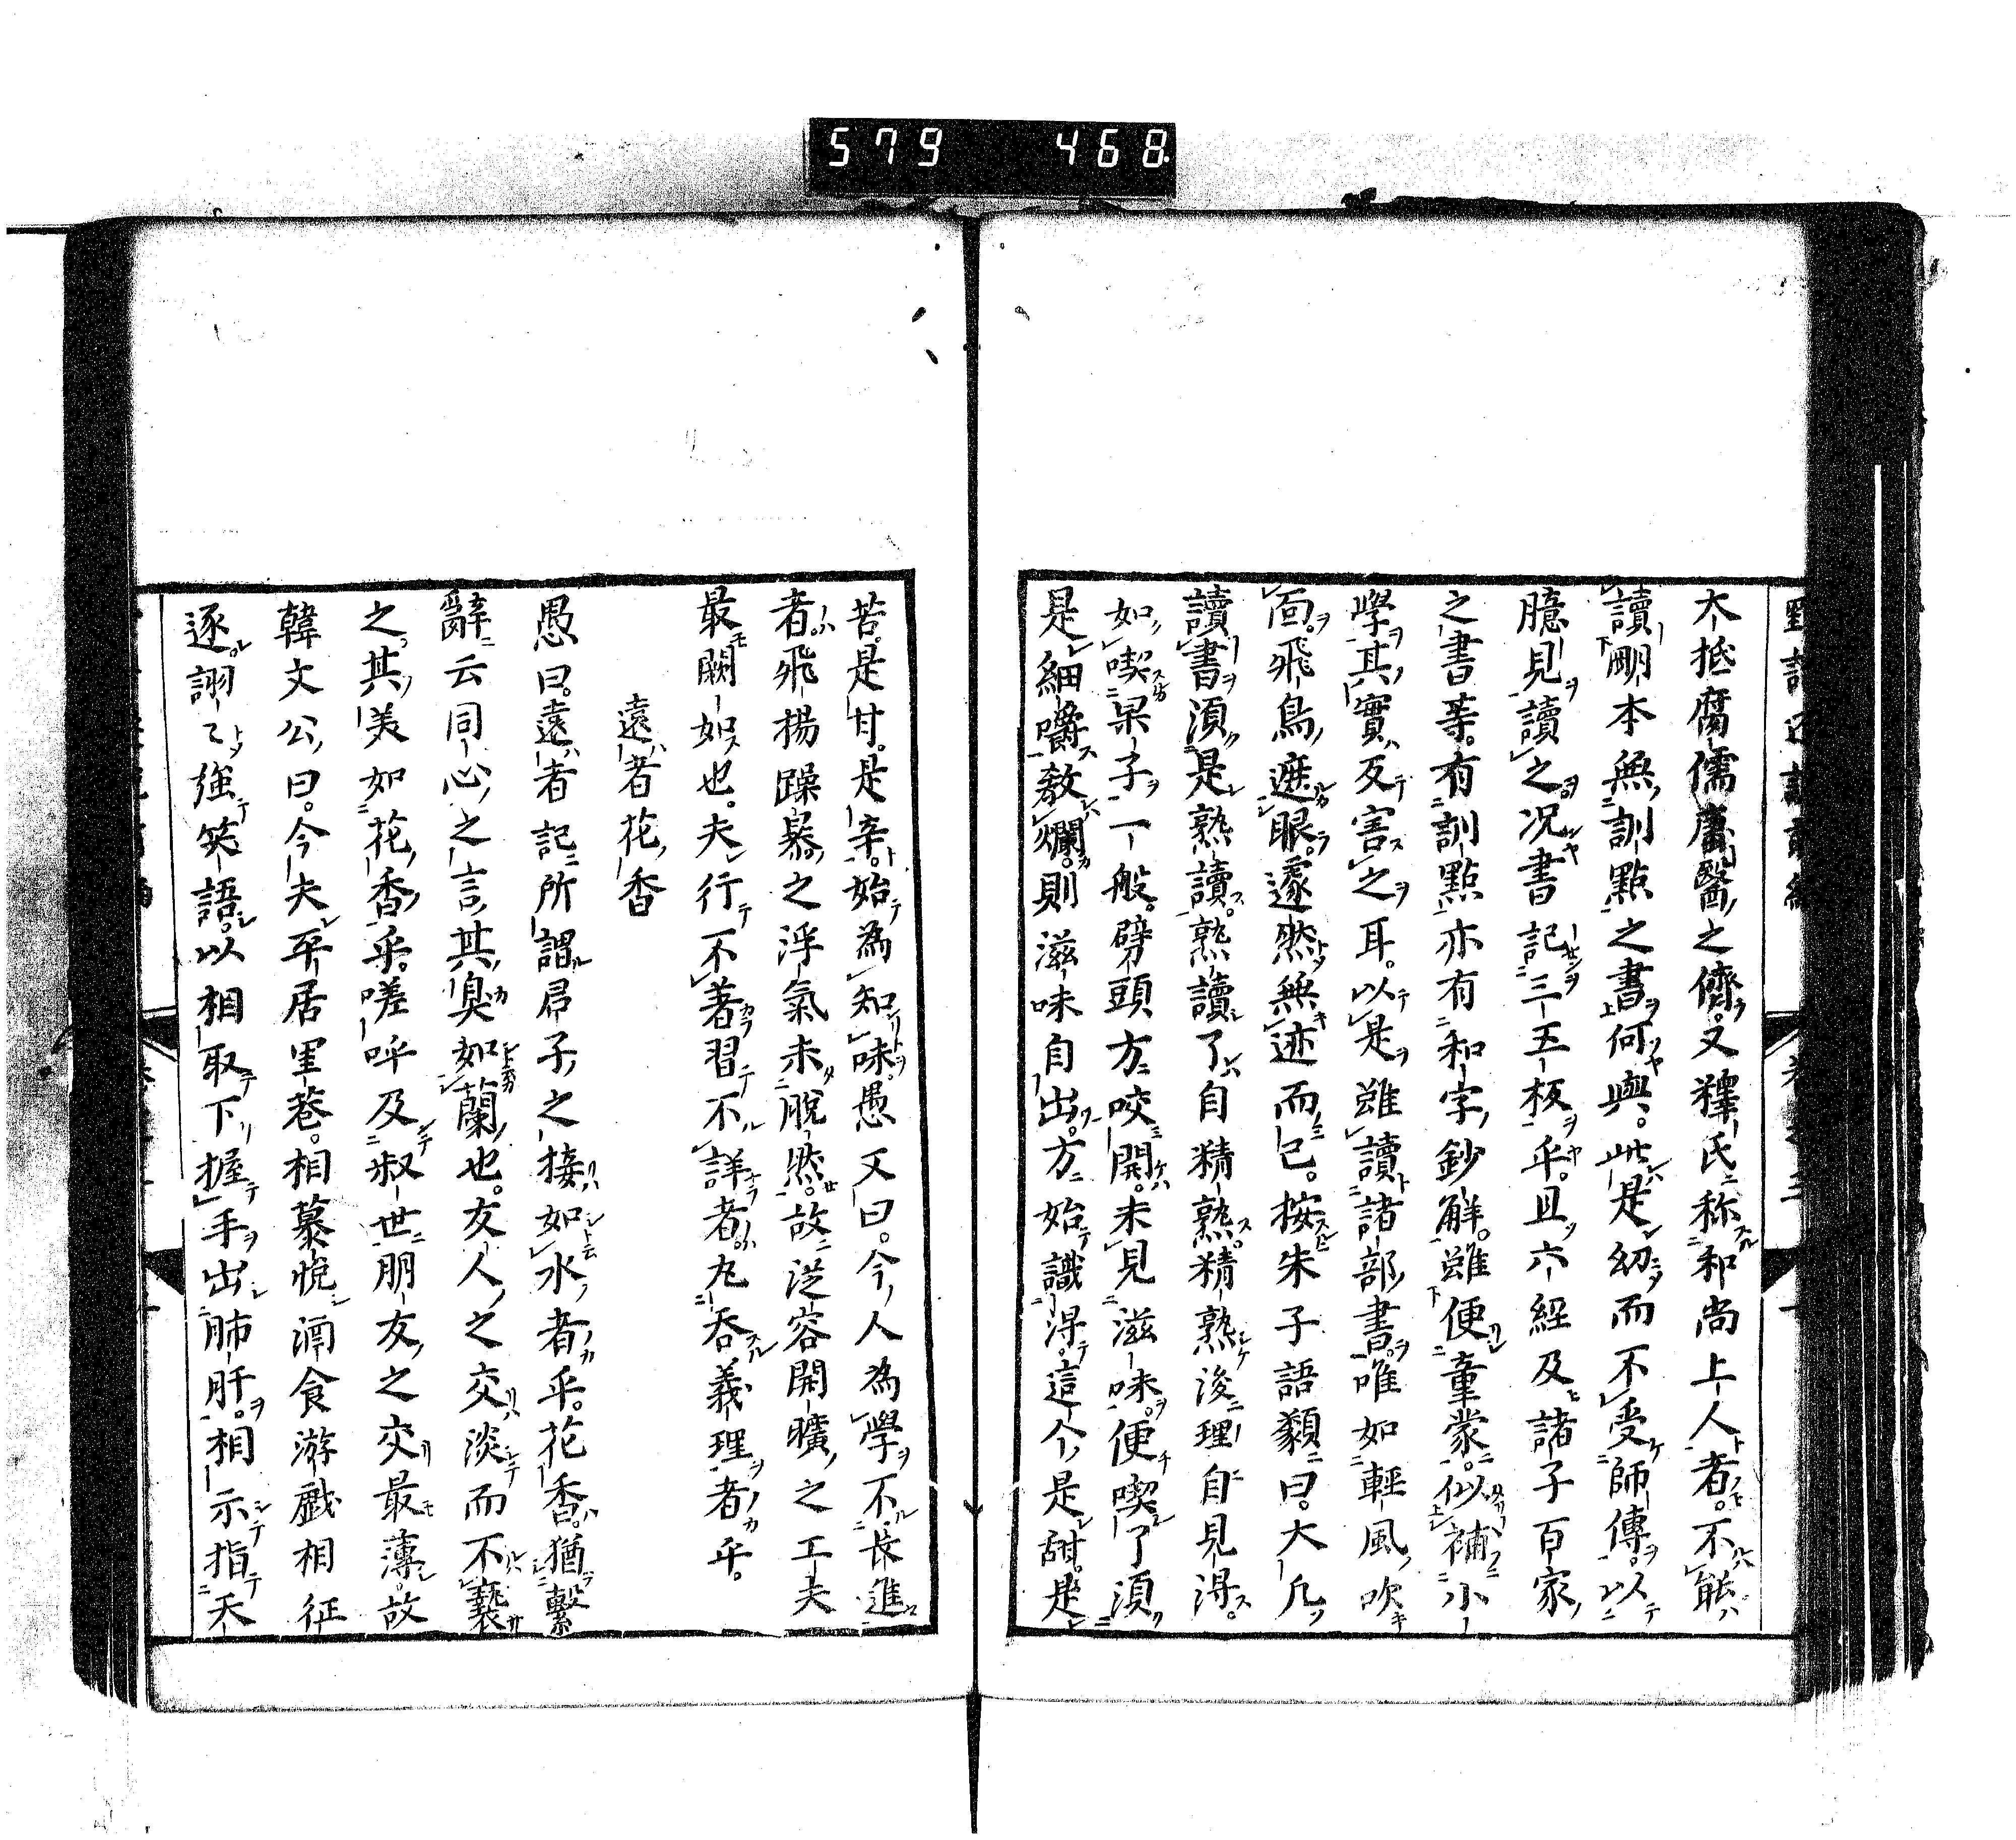 579 468
大抵腐儒庸醫之儕又釋氏称和尚上人者。不能
讀刪本無訓點之書何與。此是幼而不受師傳。以
臆見讀之况書記三五板乎。且六經及諸子百家
之書等。有訓點亦有和字鈔解。雖便童蒙。似補小
學其實反害之耳。以是雖讀諸部書。唯如輕風吹
面。飛鳥遮眼。邃然無迹而已。按朱子語纇曰。大凡
讀書須是熟讀。熟讀了自精熟。精熟後理自見淂。
如喫果子一般。劈頭方咬開。未見滋味。便喫了須
是細嚼教爛。則滋味自出。方始識淂。這个是甜。是
苦。是甘。是辛。始為知味。愚又曰。今人為學不長進
者。飛揚躁暴之浮氣未脫然。故従容閑曠之工夫
最闕如也。夫行不著習不詳者。丸呑義理者乎。
遠者花香
愚曰。遠者記所謂君子之接如水者乎。花香。猶繫
辭云同心之言其臭如蘭也。友人之交淡而不褻
之。其美如花香乎。嗟呼及叔世朋友之交最薄。故
韓文公曰。今夫平居里巷。相慕悅酒食游戲相征
逐。詡〻強笑語。以相取下握手出肺肝。相示指天